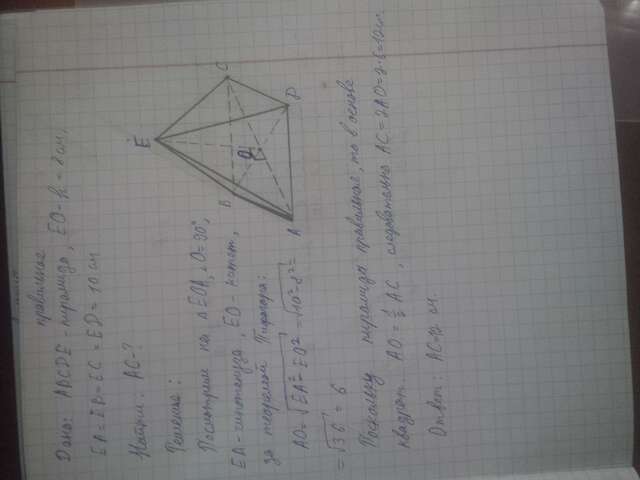 правильная
Дано: ABCDE - пирамида, EO - h = 8 см,
EA = EB = EC = ED = 10 см
Найти: AC - ?
Решение:
Рассмотрим на △EOA, ∠O = 90°,
EA - гипотенуза, EO - катет,
за теоремой Пифагора:
AO = √EA² - EO² = √10² - 8² =
= √36 = 6
Поскольку пирамида правильная, то в основе
квадрат. AO = 1/2 AC, следовательно AC = 2AO = 2·6 = 12 см.
Ответ: AC = 12 см.
E
B
C
O
A
D